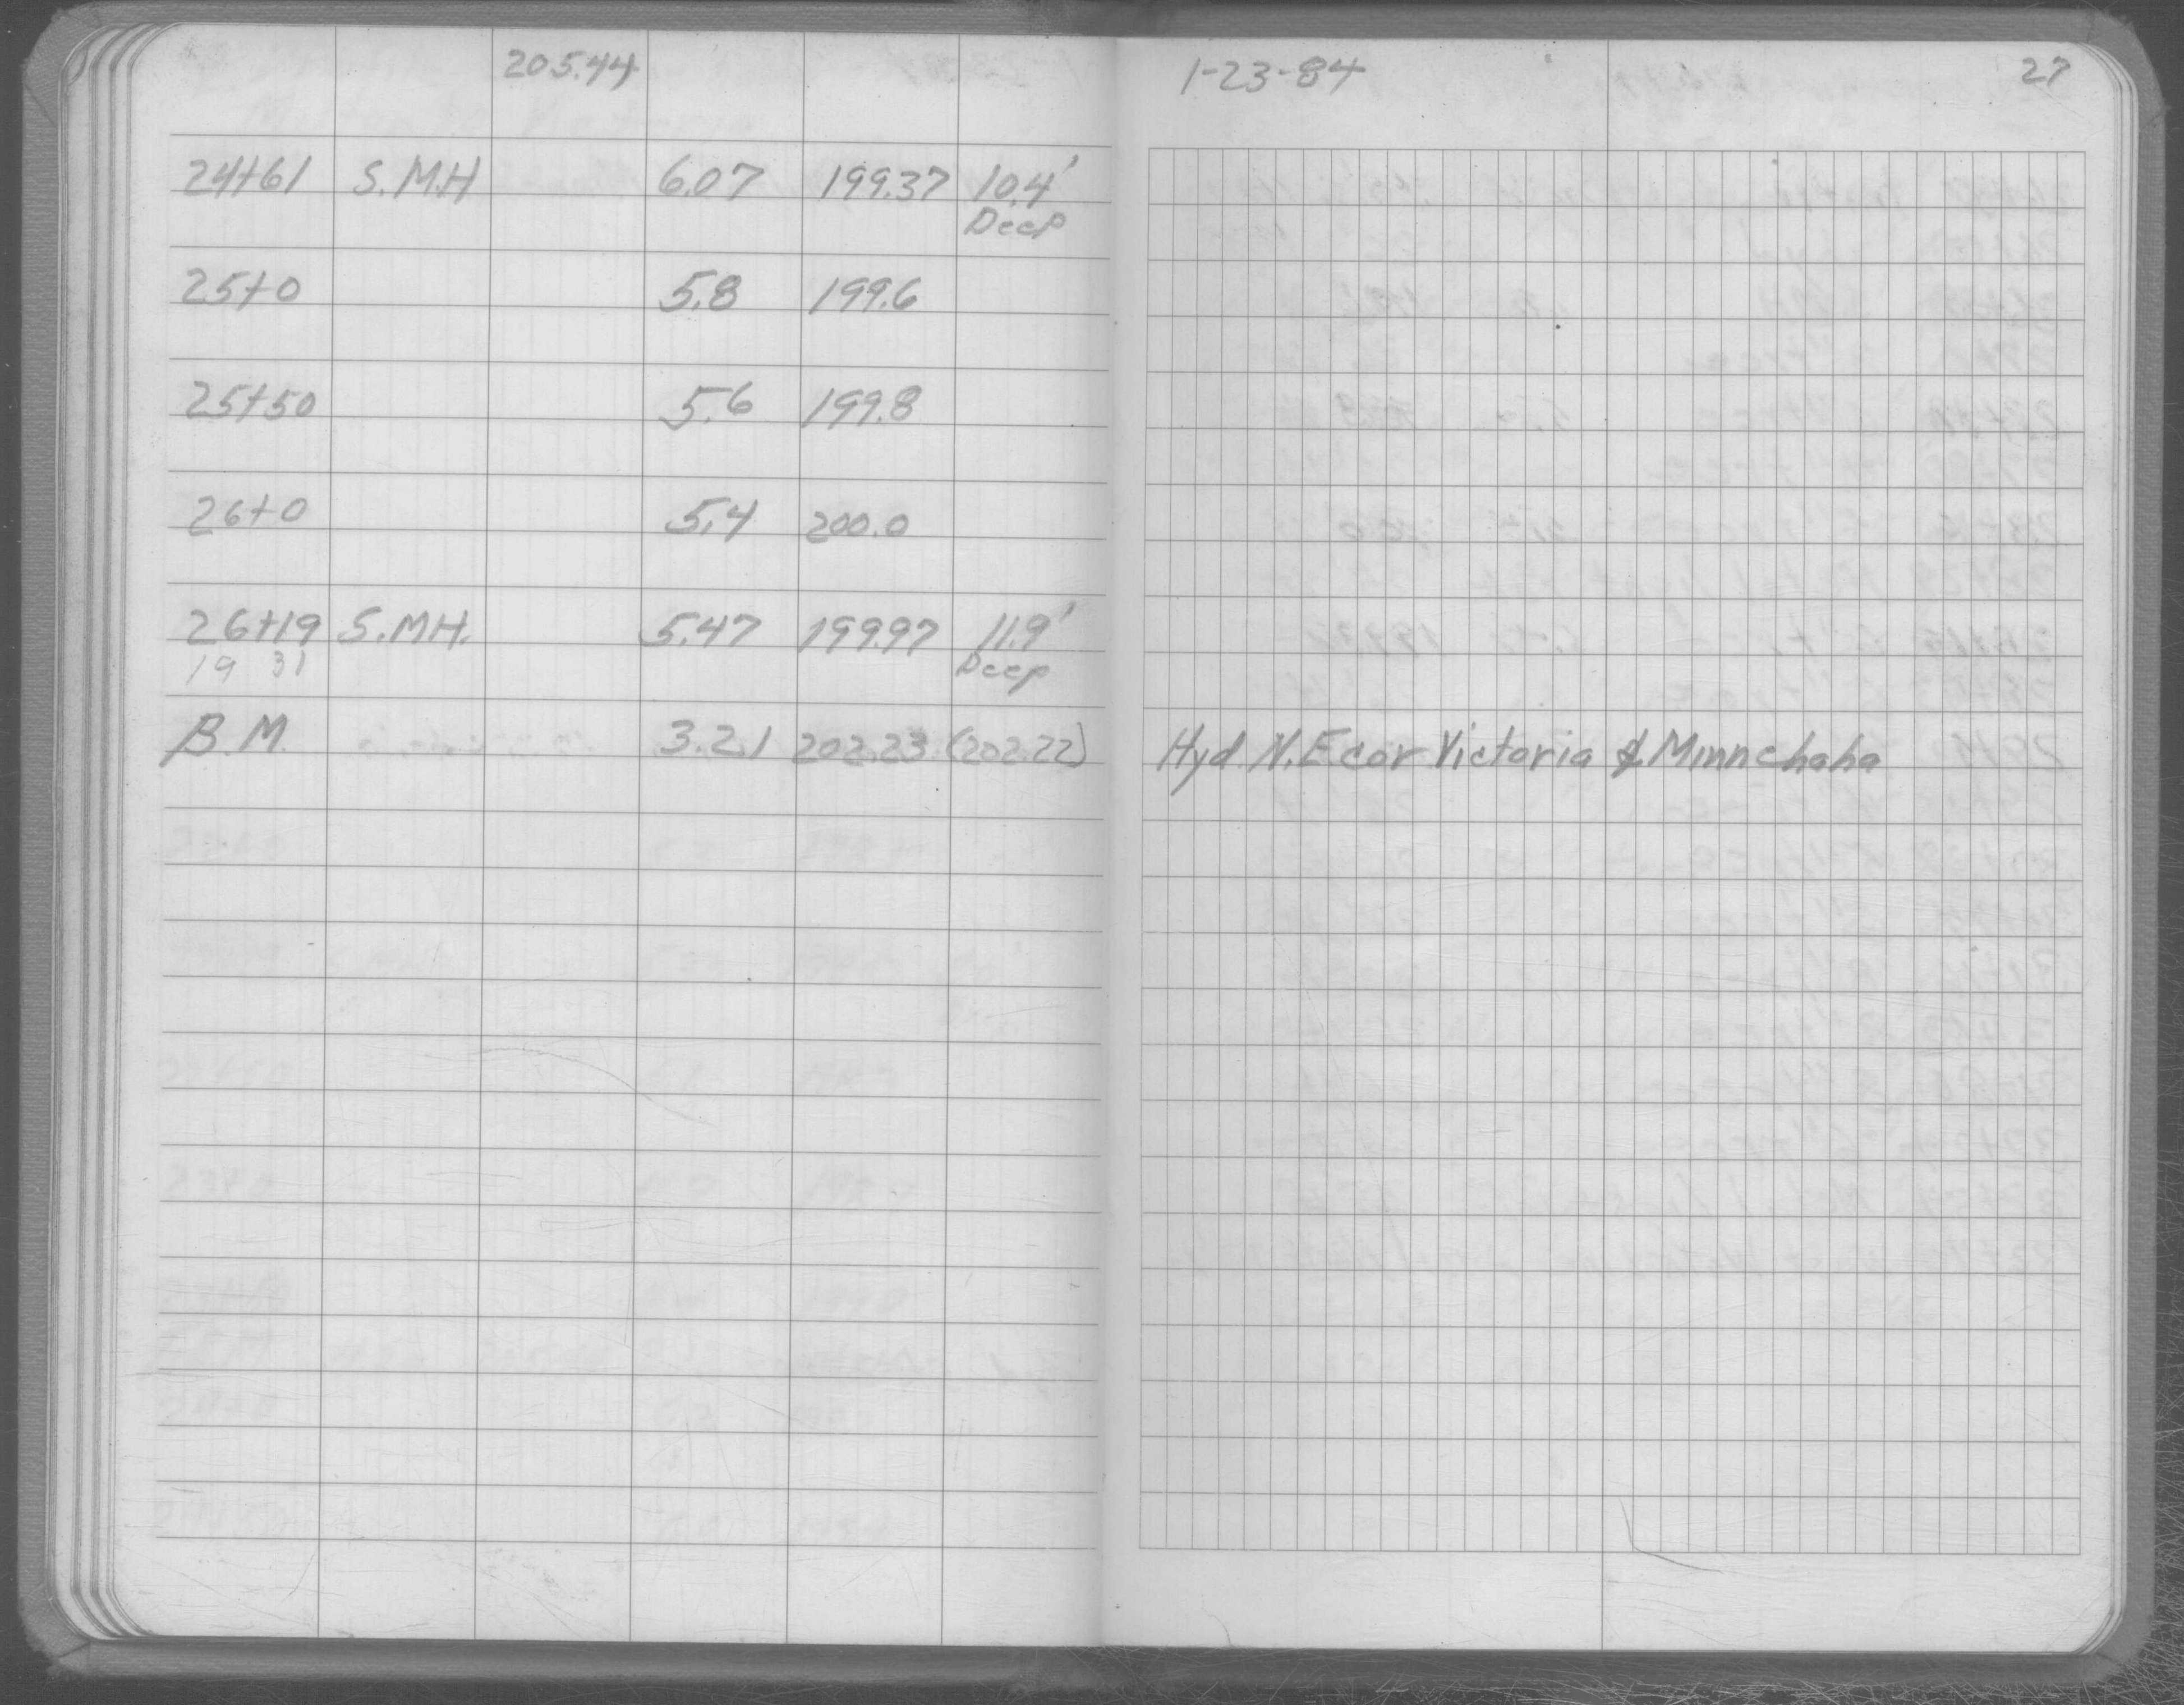 205.44
1-23-84 27
24+61 S.M.H 6.07 199.37 10.4'
Deep
25+0 5.8 199.6
25+50 5.6 199.8
26+0 5.4 200.0
26+19 S.MH. 5.47 199.97 11.9'
19 31 Deep
B.M. 3.21 202.23 (202.22) Hyd. N.E cor Victoria & Minnehaha